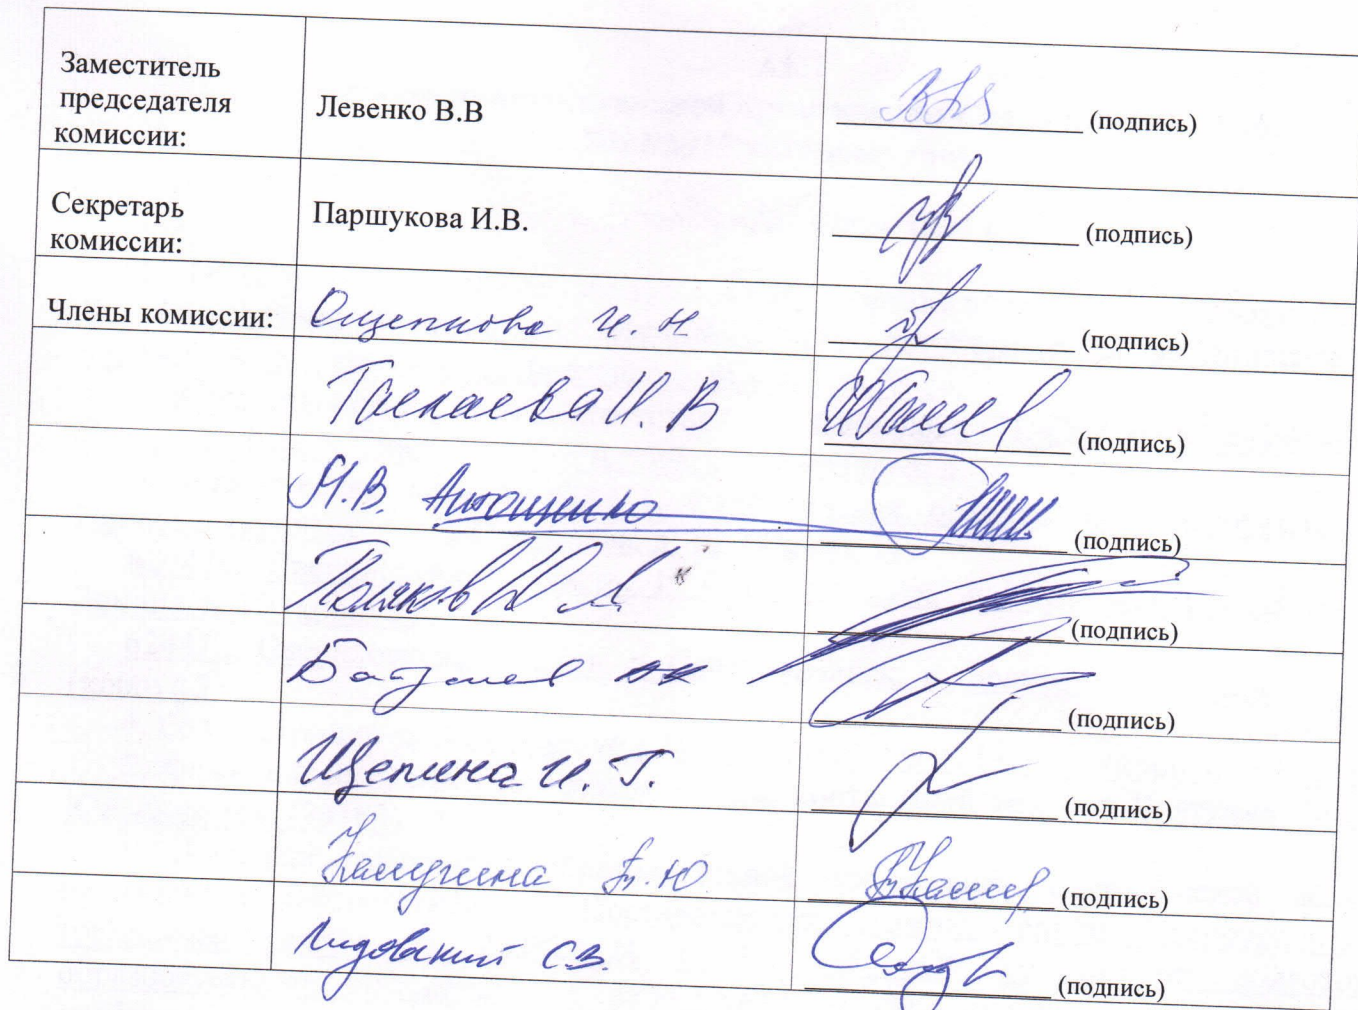 Заместитель
председателя
комиссии:
Левенко В.В
(подпись)
Секретарь
комиссии:
Паршукова И.В.
(подпись)
Члены комиссии:
Ощепкова И. Н
(подпись)
Таскаева И. В
(подпись)
Н.В. Антощенко
(подпись)
Поляков
(подпись)
(подпись)
Щепина И. Г.
(подпись)
Ю
(подпись)
Лидовский С.В.
(подпись)